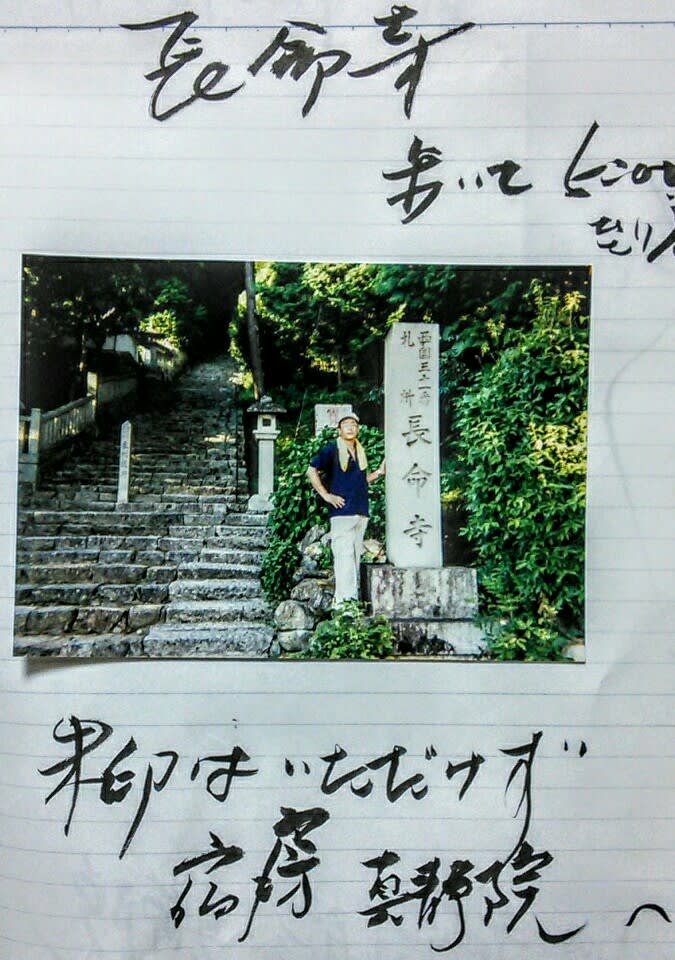 長命寺
歩いて
西国三十一番
札所
長命寺
朱印はいただけず
宿房 真静院 へ